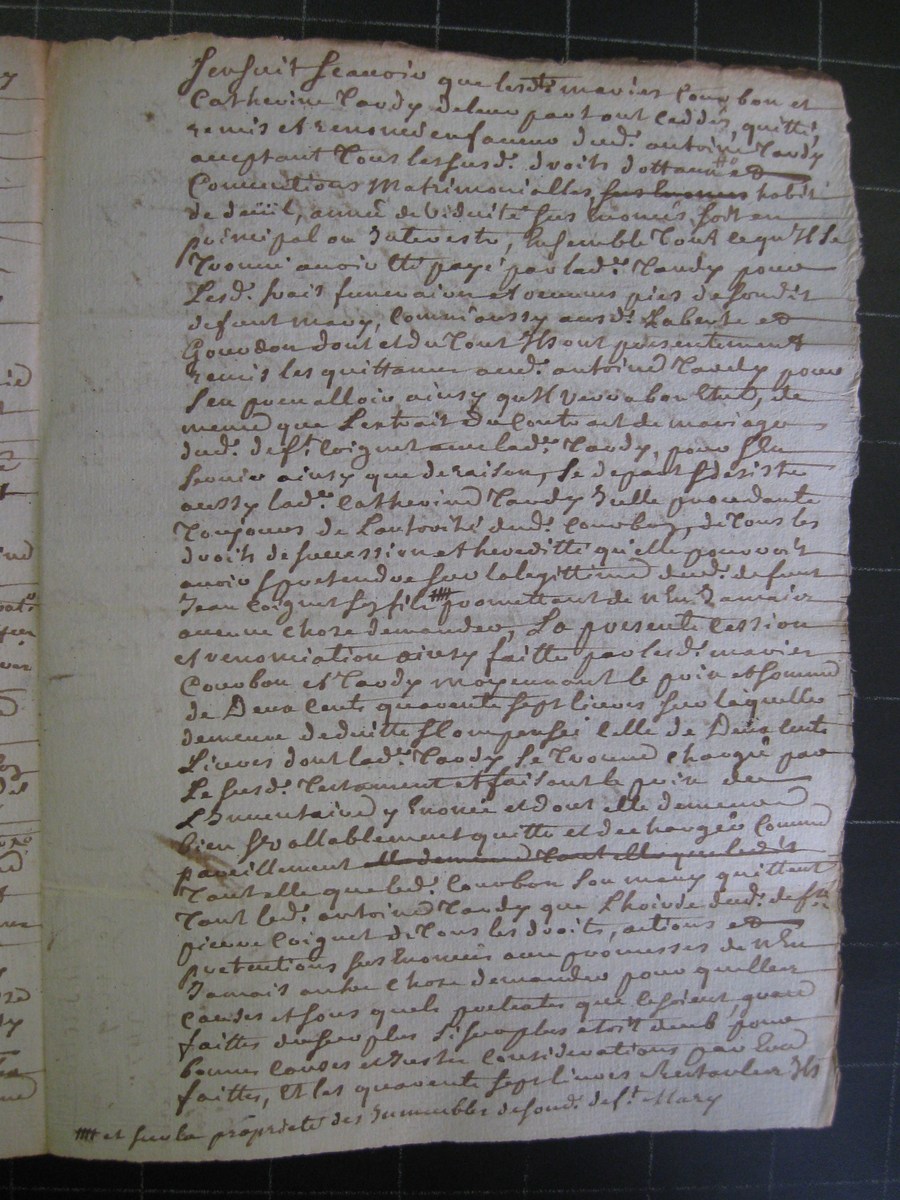 sensuit scauoir que lesdts maries Courbon et
Catherine Tardy de leur part ont ceddés, quitté,
remis et renoncé en faueur dudt. antoine Tardy
acceptant tous les susdt. droits d'ottaux et
Conuentions Matrimonialles sus enoncés habit
de deüil, année de Viduité sus Enoncés soit en
principal ou Interests, Ensemble tout ce qu'Il se
trouue auoir eté payé par ladte. Tardy pour
Lesdt. frais funeraires et oeuures pies de sondit
defunt mary, Comm'aussy ausdt. Laberte et
Gourdon dont et du tout Ils ont presentement
remis les quittances audt. antoine Tardy pour
s'en preualloir ainsy qu'Il Verra bon Etre, de
meme que L'extrait du Contract de mariage
dudt. deft. Coignet auec ladte. Tardy, pour s'En
seruir ainsy que de raison, se depart & desiste
aussy ladte. Catherine Tardy Icelle procedante
toujours de L'autorité dudt. Courbon, de tous les
droits de succession et heredité qu'elle pouuoit
auoir & pretendre sur la legittime dudt. defunt
Jean Coignet son fils promettant de n'En Jamais
aucune chose demander, La presente Cession
et renonciation ainsy faitte par lesdt. maries
Courbon et Tardy moyennant le prix et somme
de Deux Cents quarante sept liures sur laquelle
demeure deduitte & Compensée Celle de Deux Cents
Liures dont ladte. Tardy se trouue chargée par
Le susdt. Testament et faisant le prix de
L'Inuentaire y Enoncé et dont elle demeure
bien & vallablement quitte et dechargée Comme
pareillement elle demeure tant elle que ledit
tant elle que ledt. Courbon son mary quittent
tant ledt. antoine Tardy que L'hoirie dudt. deft.
pierre Coignet de tous les droits, actions et
pretentions sus Enoncés auec promesses de n'En
Jamais autre chose demander pour quelles
causes et sous quels pretextes que ce soient, quand
faittes du surplus si surplus etoit deub, pour
bonnes causes et Justes Considerations par Eux
faittes, Et les quarante sept liures restantes Ils
et sur la proprieté des Immeubles de sondt. deft. Mary